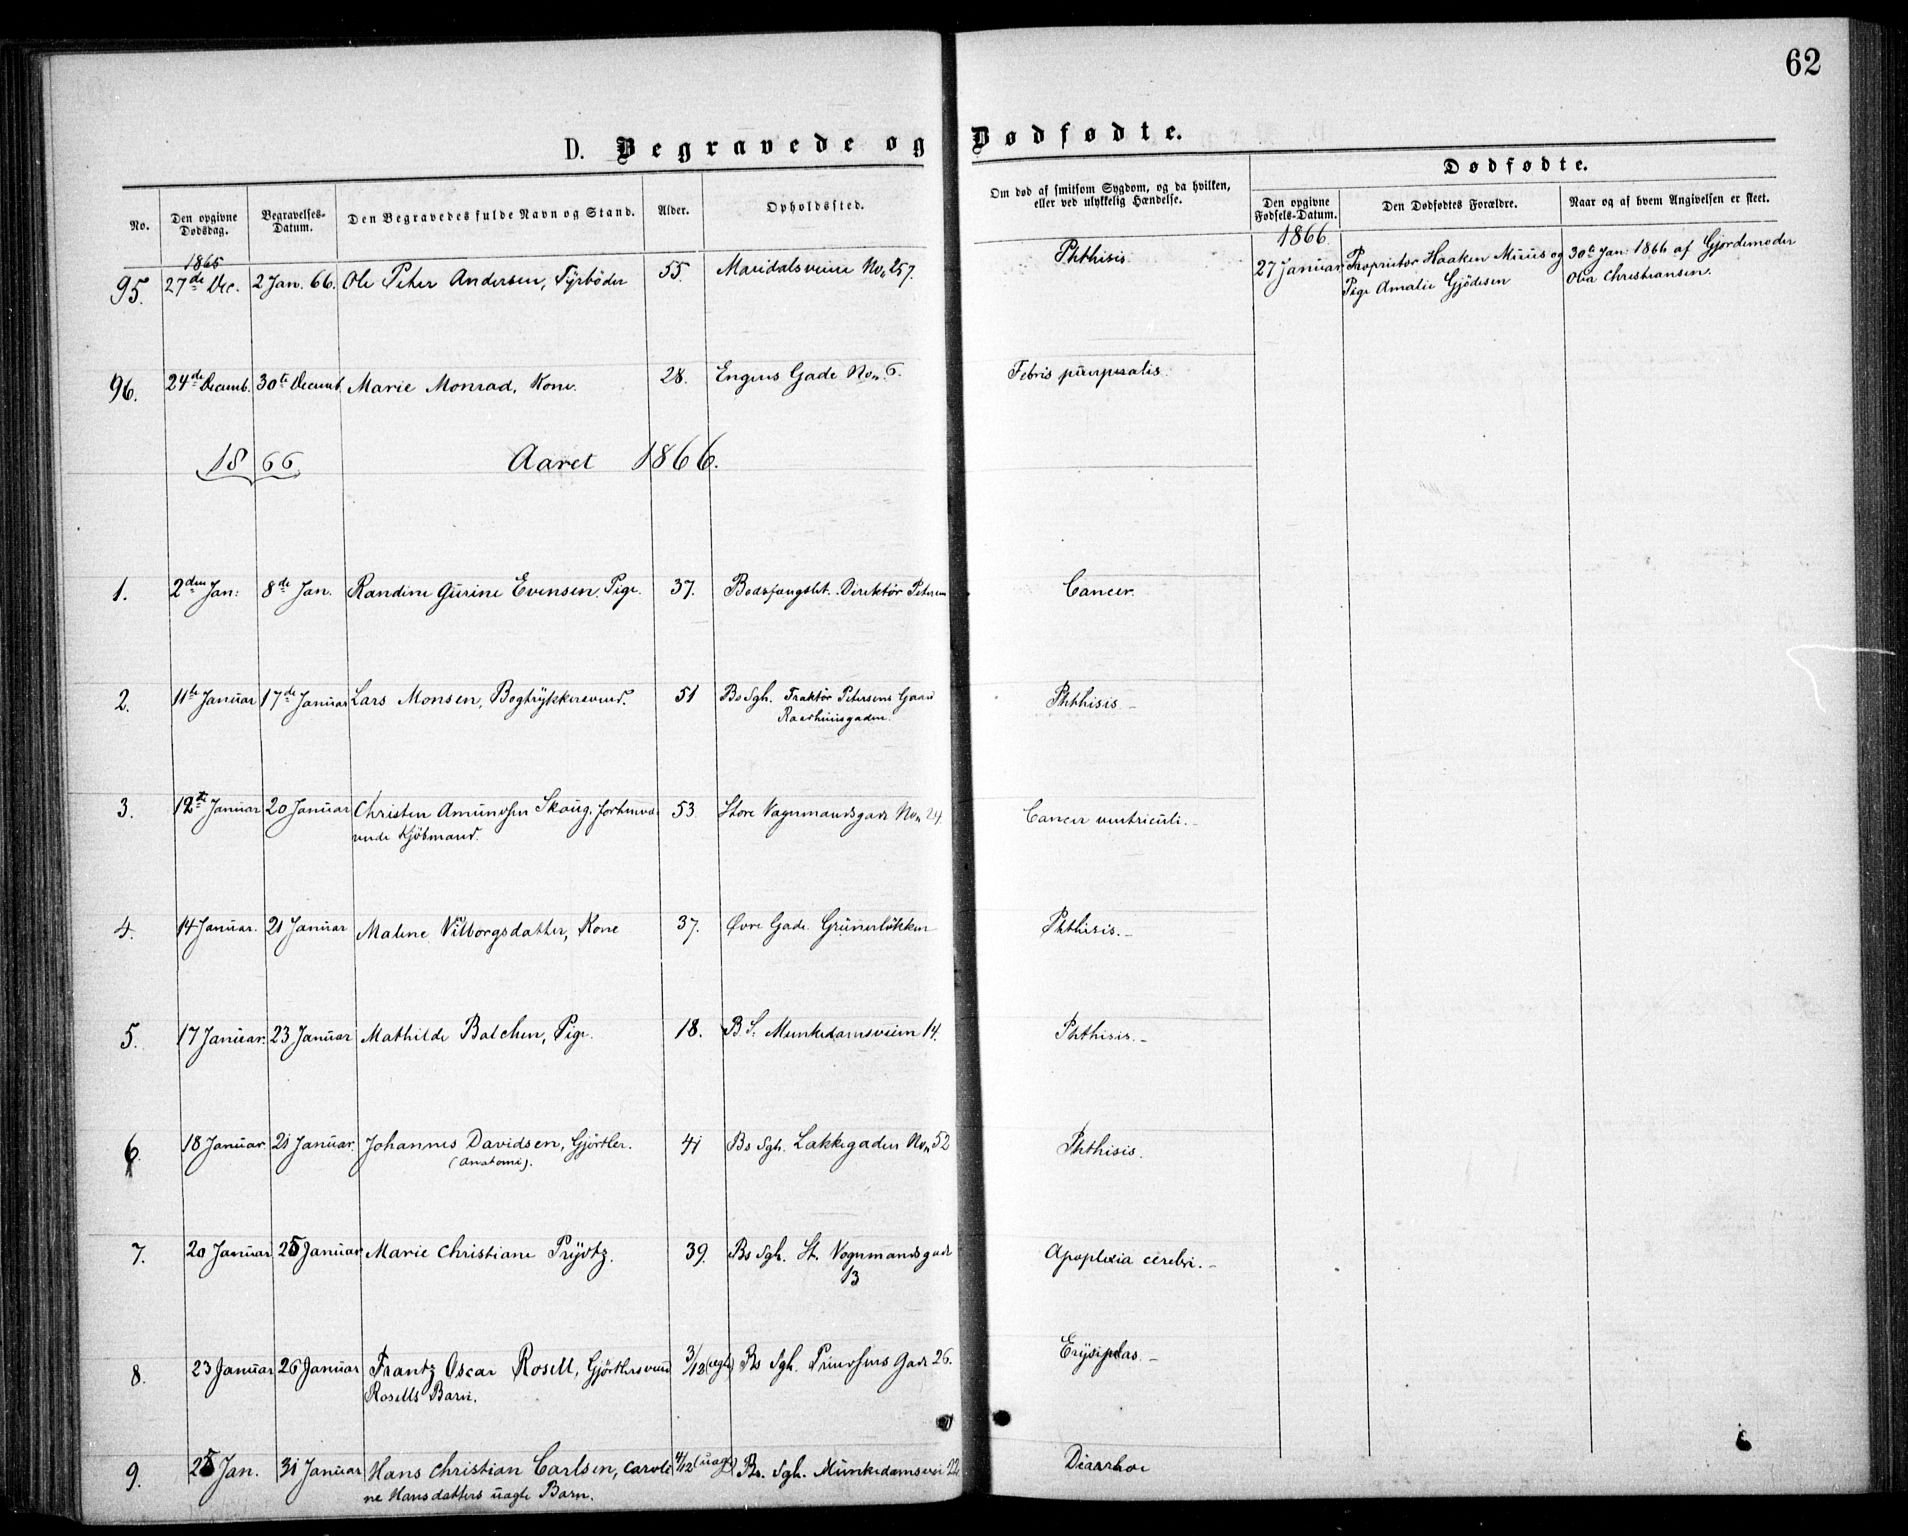 62
D. Begravede og Dødfødte.
No. Den opgivne Dødsdag. Begravelses-Datum. Den Begravedes fulde Navn og Stand. Alder. Opholdssted. Om død af smitsom Sygdom, og da hvilken, eller ved ulykkelig Hændelse.
Dødfødte.
Den opgivne Fødsels-Datum. Den Dødfødtes Forældre. Naar og af hvem Angivelsen er skeet.
1865 1866.
95. 27de Dec. 2 Jan. 66. Ole Peter Andersen, Fyrbøder 55. Maridalsveien No 257. Phthisis. 27 Januar. Proprietor Haaken og 30te Jan: 1866 af Gjordemoder
Pige Amalie Gjødesen Christiansen.
96. 24de Decemb. 30te Decemb. Marie Monrad, Kone. 28. Engens Gade No. 6. Febris puerperalis.
1866 Aaret 1866.
1. 2den Jan: 8de Jan. Randine Gurine Evensen. Pige. 37. Bodsfængslet. Direktør Petersen Cancer.
2. 11te Januar 17de Januar Lars Monsen, Bogtrykkersvend. 51 Bo Sgh. Faktør Petersens Gaard Phthisis. –
Raadhuusgaden.
3. 12te Januar 20 Januar Christen Amundsen Skoug, forhenvæ- 53. Store Vognmandsgade No 24. Cancer ventriculi. –
rende Kjøbmand.
4. 14 Januar. 21 Januar Malene Vilborgsdatter, Kone 37. Øvre Gade Grünerløkken Phthisis. –
5. 17 Januar. 23 Januar Mathilde Balchen, Pige. 18. B S. Munkedamsveien 14. Phthisis. –
6. 18 Januar. 21 Januar. Johannes Davidsen, Gjørtler. 41 Bs Sgh. Lakkegaden No 52 Phthisis.
(Anatomi).
7. 20 Januar. 25 Januar Marie Christiane Prydtz. 39. Bs Sgh. St. Vognmandsgade Apoplexia cerebri. –
13
8. 23 Januar 26 Januar Frantz Oscar Rosell, Gjørtlersvend 3/12 (ægte) Bs Sgh. Prindsens Gade 26. Erysipelas. –
Rosells Barn.
9. 25 Jan. 31 Januar Hans Christian Carlsen, Caroli- 4/12 (uægte) Bs. Sgh. Munkedamsvei 22 Diarrhoe
ne Hansdatters uægte Barn.